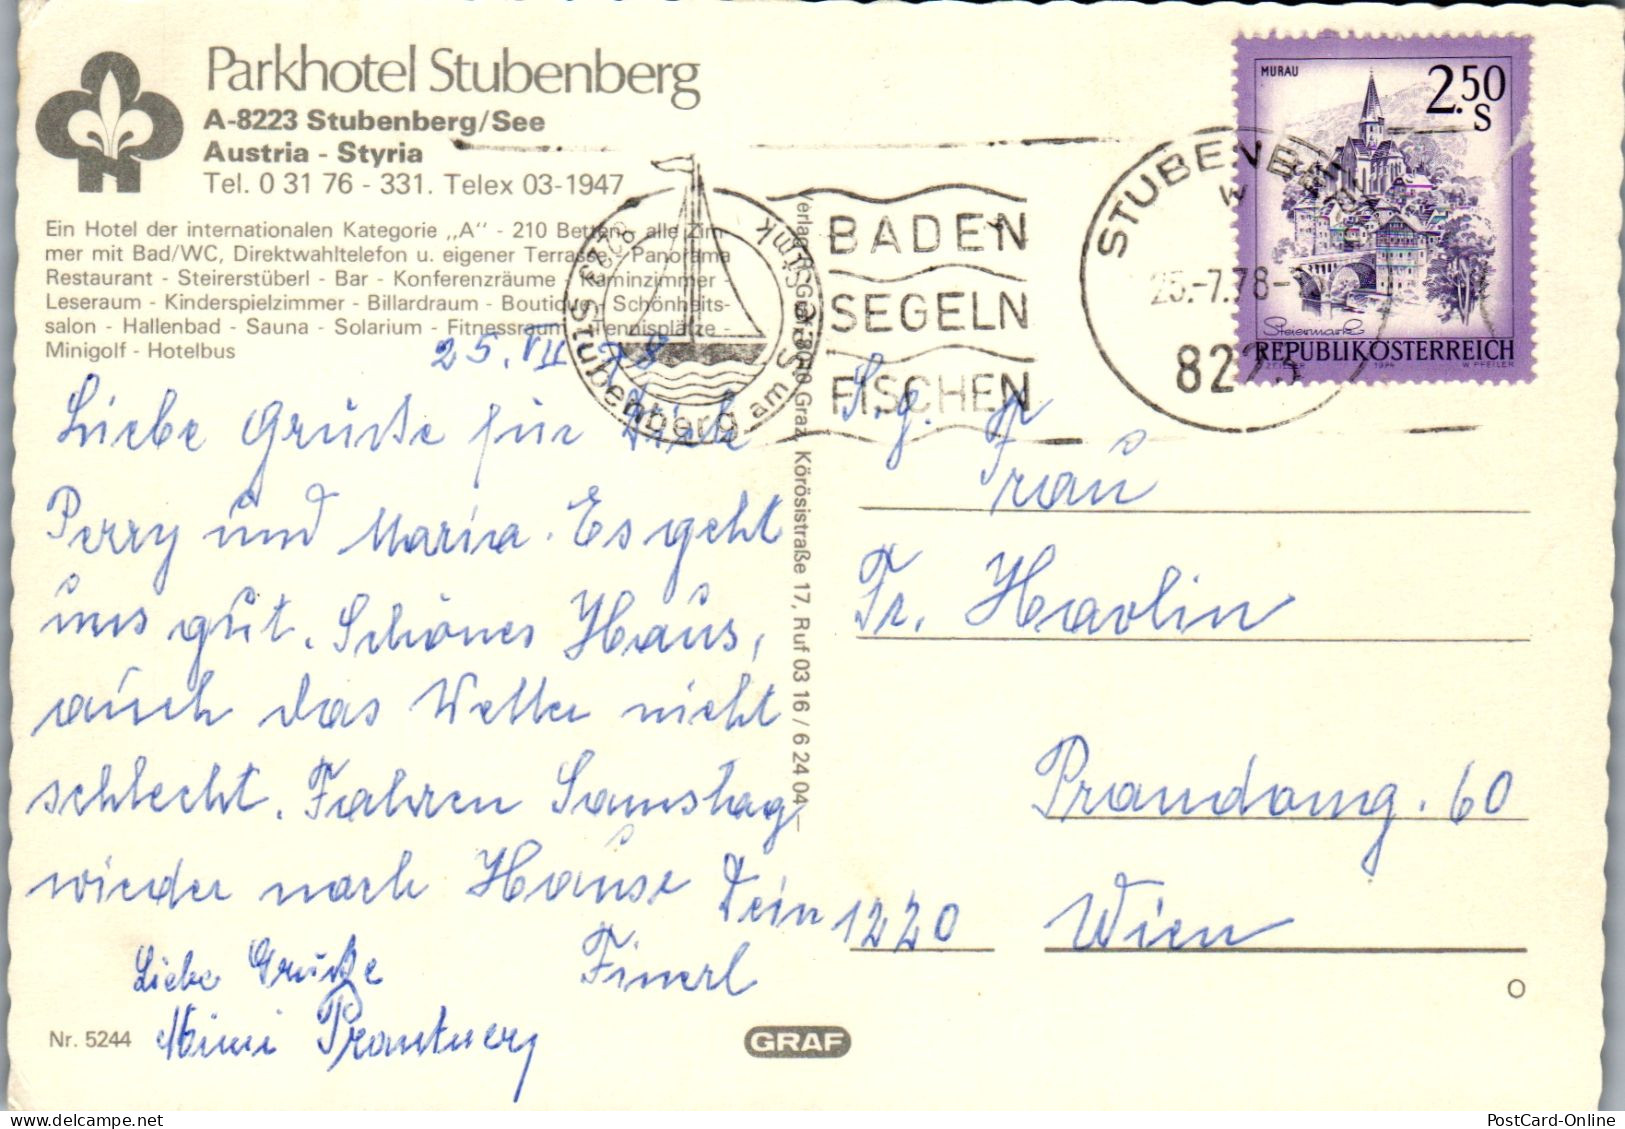 Parkhotel Stubenberg
A-8223 Stubenberg/See
Austria - Styria
Tel. 0 31 76 - 331. Telex 03-1947
Ein Hotel der internationalen Kategorie „A" - 210 Betten - alle Zim-
mer mit Bad/WC, Direktwahltelefon u. eigener Terrasse - Panorama
Restaurant - Steirerstüberl - Bar - Konferenzräume - Kaminzimmer -
Leseraum - Kinderspielzimmer - Billardraum - Boutique - Schönheits-
salon - Hallenbad - Sauna - Solarium - Fitnessraum - Tennisplätze -
Minigolf - Hotelbus
25. VII 78
Liebe Grüße für Dich
Perry und Maria. Es geht
uns gut. Schönes Haus,
auch das Wetter nicht
schlecht. Fahren Samstag
wieder nach Hause Dein
Finerl
Liebe Grüße
Mimi
Nr. 5244
GRAF
Verlag H. Graf, 8010 Graz, Körösistraße 17, Ruf 03 16 / 6 24 04 —
8223 Stubenberg am See Stmk
BADEN
SEGELN
FISCHEN
STUBENBERG
25.-7.78
8223
MURAU
2.50
S
Steiermark
REPUBLIK ÖSTERREICH
ZEILLER 1974 W. PFEILER
S.g. Frau
Fr. Havlin
Prandaug. 60
1220 Wien
O
PostCard-Only.eu
PostCard-Online